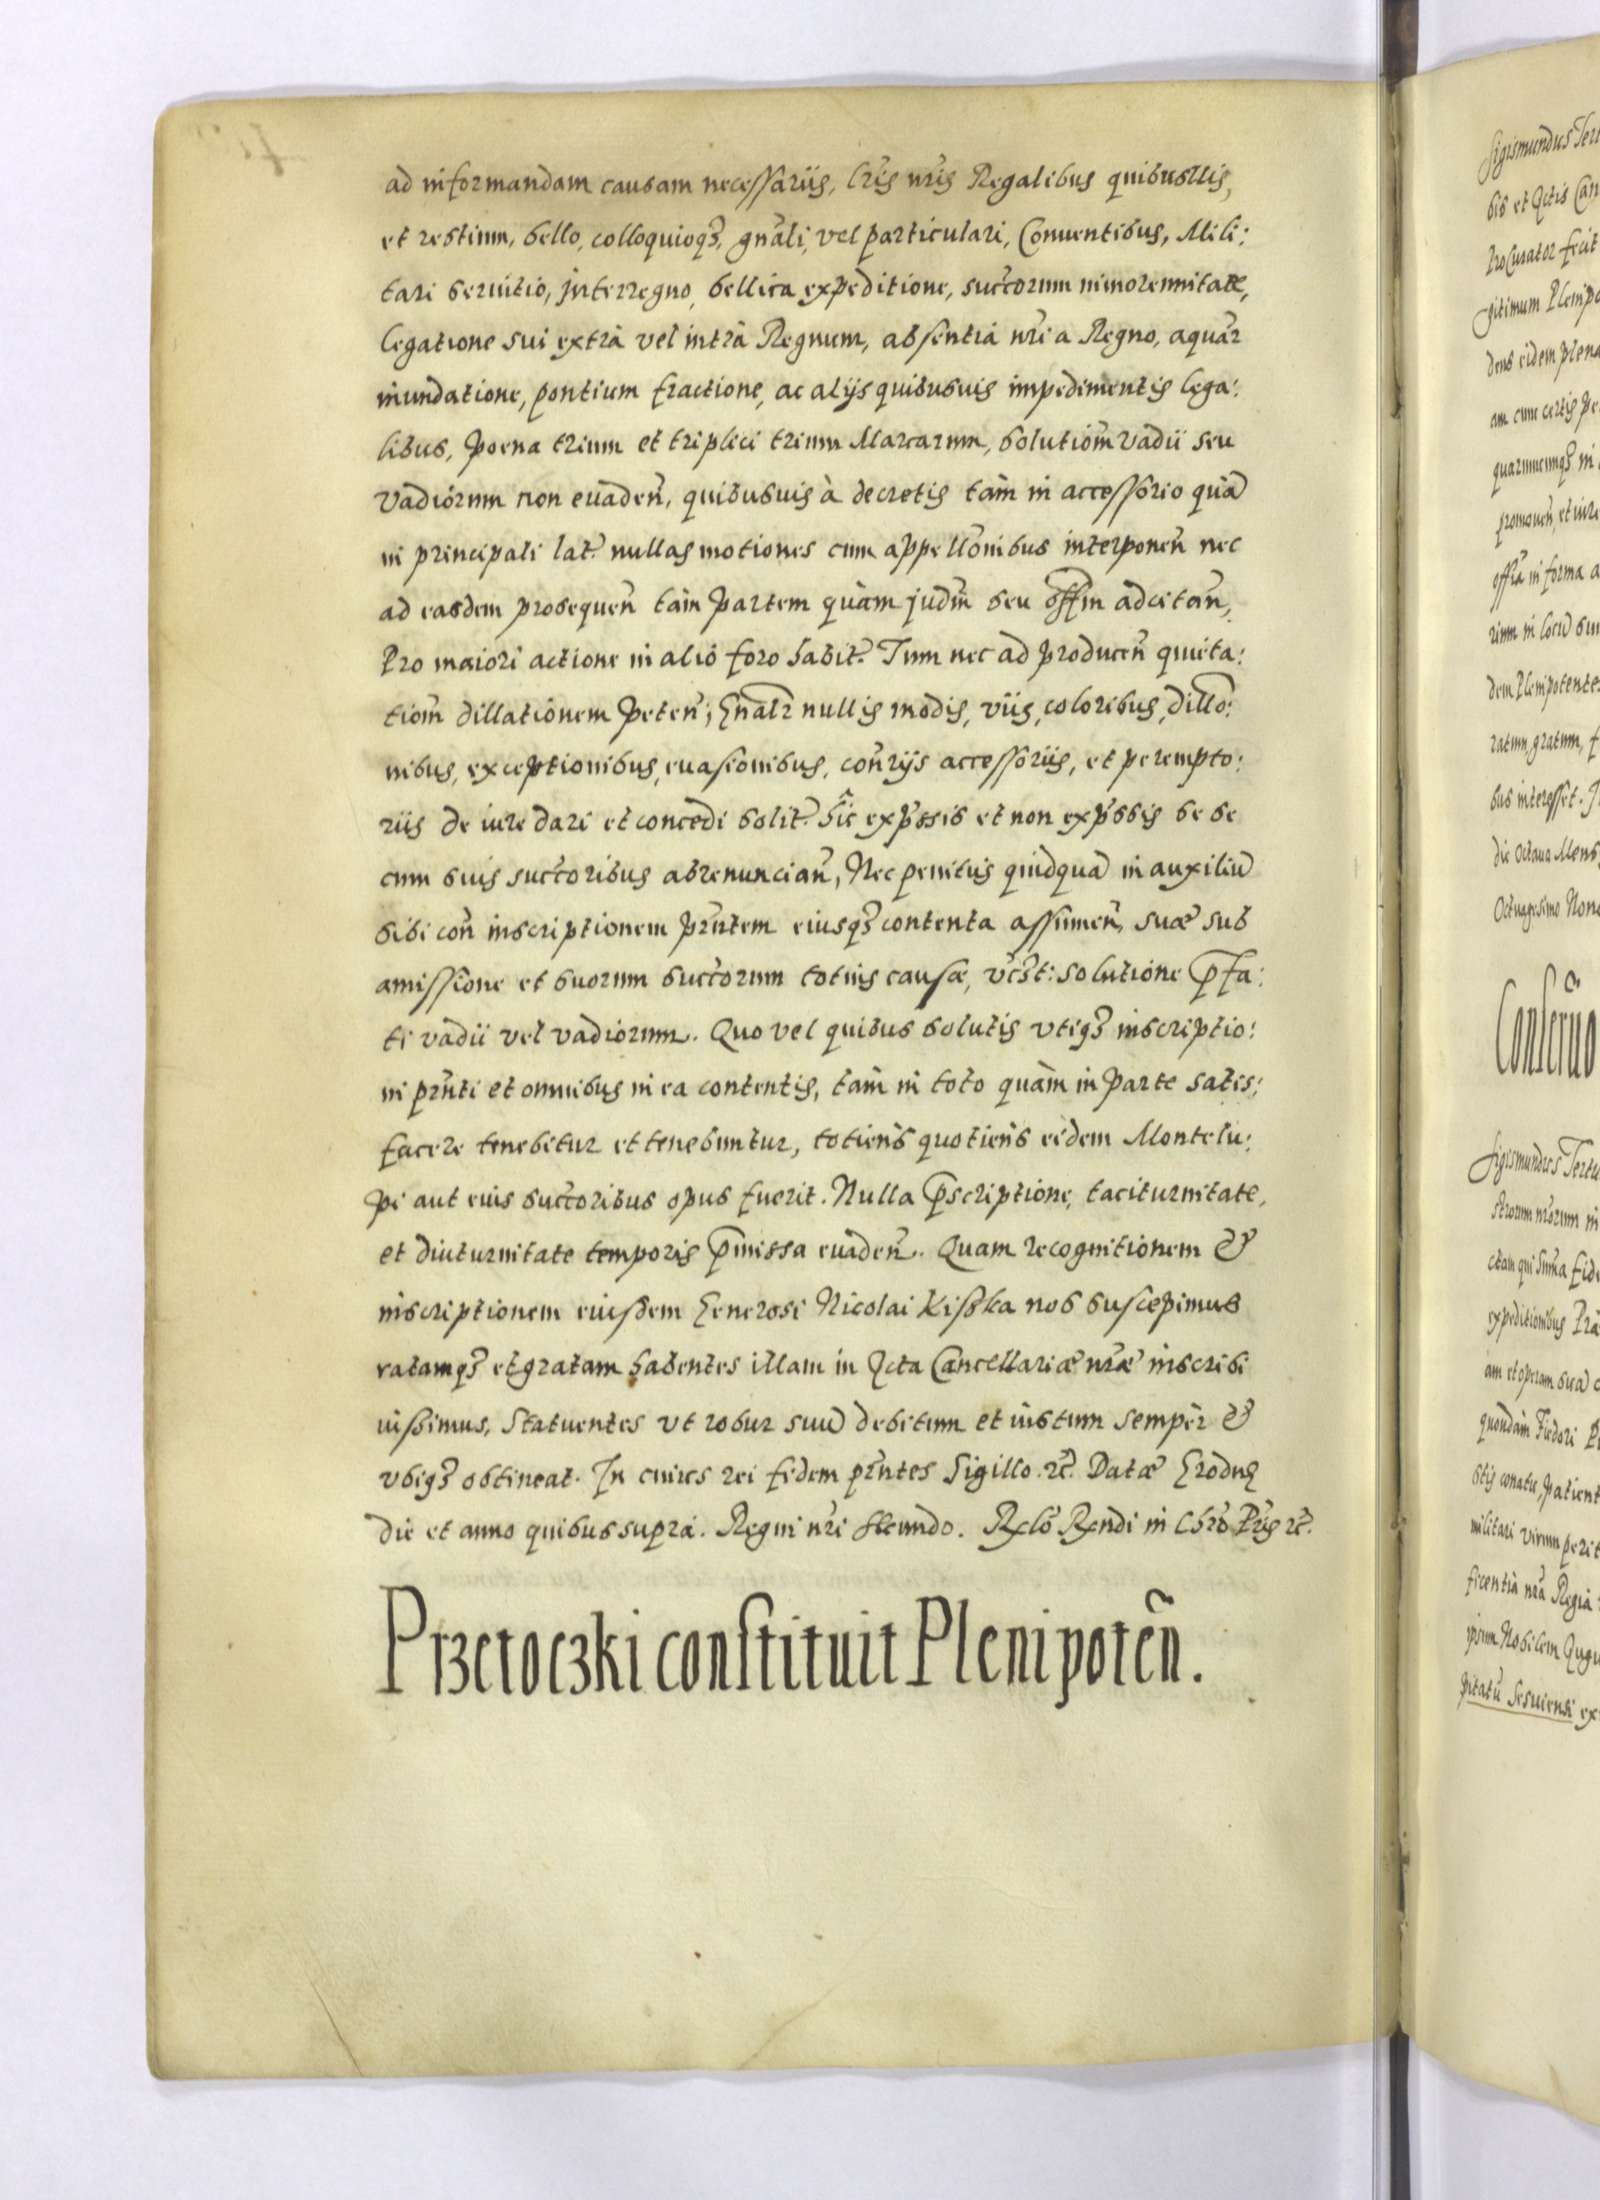 ad informandam causam necessariis, lr̃is nr̃is Regalibus quibusllis,
et restium, bello, colloquioqȝ, gnãli, vel particulari, Conuentibus, Mili:
tari seruitio, Interregno, bellica expeditione, succ̃orum minorennitate,
legatione sui extrà vel intrà Regnum, absentia nr̃i a Regno, aquar̃
inundatione, pontium fractione, ac alijs quibusuis impedimentis lega:
libus, poena trium et triplici trium Marcarum, solutiom̃ vadii seu
vadiorum non euaden̄, quibusuis à decretis tàm in accessorio quā
in principali lat̃. nullas motiones cum appellõnibus interponen̄ nec
ad easdem prosequen̄ tàm partem quàm judm̃ seu offm̃ adcitan̄,
Pro maiori actione in alio foro habit̃. Tum nec ad producen̄ quieta:
tiom̃ dillationem peten̄; Gnãlr nullis modis, viis, coloribus, dillõ:
nibus, exceptionibus, euasionibus, con̄rijs accessoriis, et perempto:
riis de iure dari et concedi solit̃. hîc exp̃ssis et non exp̃ssis se se
cum suis succ̃oribus abrenuncian̄, Nec penitus quidquā in auxiliū
sibi con̄ inscriptionem prñtem eiusqȝ contenta assumen̄, suæ sub
amissione et suorum succ̃orum totius causæ, vc̃st: solutione p̃fa:
ti vadii vel vadiorum. Quo vel quibus solutis vtiqȝ inscriptio:
ni prñti et omnibus in ea contentis, tàm in toto quàm in parte satis:
facere tenebitur et tenebuntur, totiens quotiens eidem Montelu:
pi aut eius succ̃oribus opus fuerit. Nulla p̃scriptione, taciturnitate,
et diuturnitate temporis p̃missa euaden̄. Quam recognitionem &
inscriptionem eiusdem Generosi Nicolai Kiszka nos suscepimus
ratamqȝ et gratam habentes illam in Acta Cancellariæ nr̃æ inscribi
iussimus, Statuentes vt robur suū debitum et iustum semper &
vbiqȝ obtineat. In cuius rei fidem prñtes Sigillo. rc̃. Datæ Grodnæ
die et anno quibus supra. Regni nr̃i secundo. Rxlõ Rxñdi in Chrõ Pr̃is rc̃.
Przetoczki constituit Plenipoten̄.
Sigismundus Ter
bis et Actis Can
Procurator fecit
gitimum Plenipo
dens eidem plena
am cum certis pe
quarumcunqȝ in
promouen̄, et iure
offi̅a in forma a
rium in locū su
dem Plenipotente
ratum, gratum, f
bus interesset. I
die Octaua Mens
Octuagesimo Nono
Conseru̅o
Sigismundus Tertiu
strorum nr̃orum in
ctam qui sum̃a fide
expeditionibus Præ
am et operam suā c
quondam Fiedori P
stis conatu, patient
militari virum perit
ficentia nr̃a Regia
ipsum Nobilem Augu
pitatū Sesuiensi ex